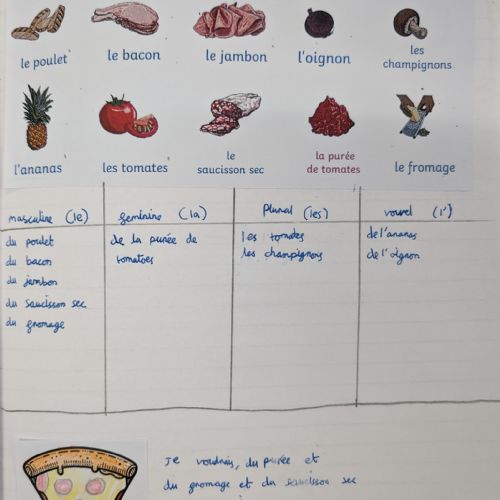 le poulet
le bacon
le jambon
l'oignon
les
champignons
l'ananas
les tomates
le
saucisson sec
la purée
de tomates
le fromage
masculine (le)
feminine (la)
Plural (les)
vowel (l')
du poulet
du bacon
du jambon
du saucisson sec
du fromage
de la purée de
tomatoes
les tomates
les champignons
de l'ananas
de l'oignon
Je voudrais, du purée et
du fromage et du saucisson sec